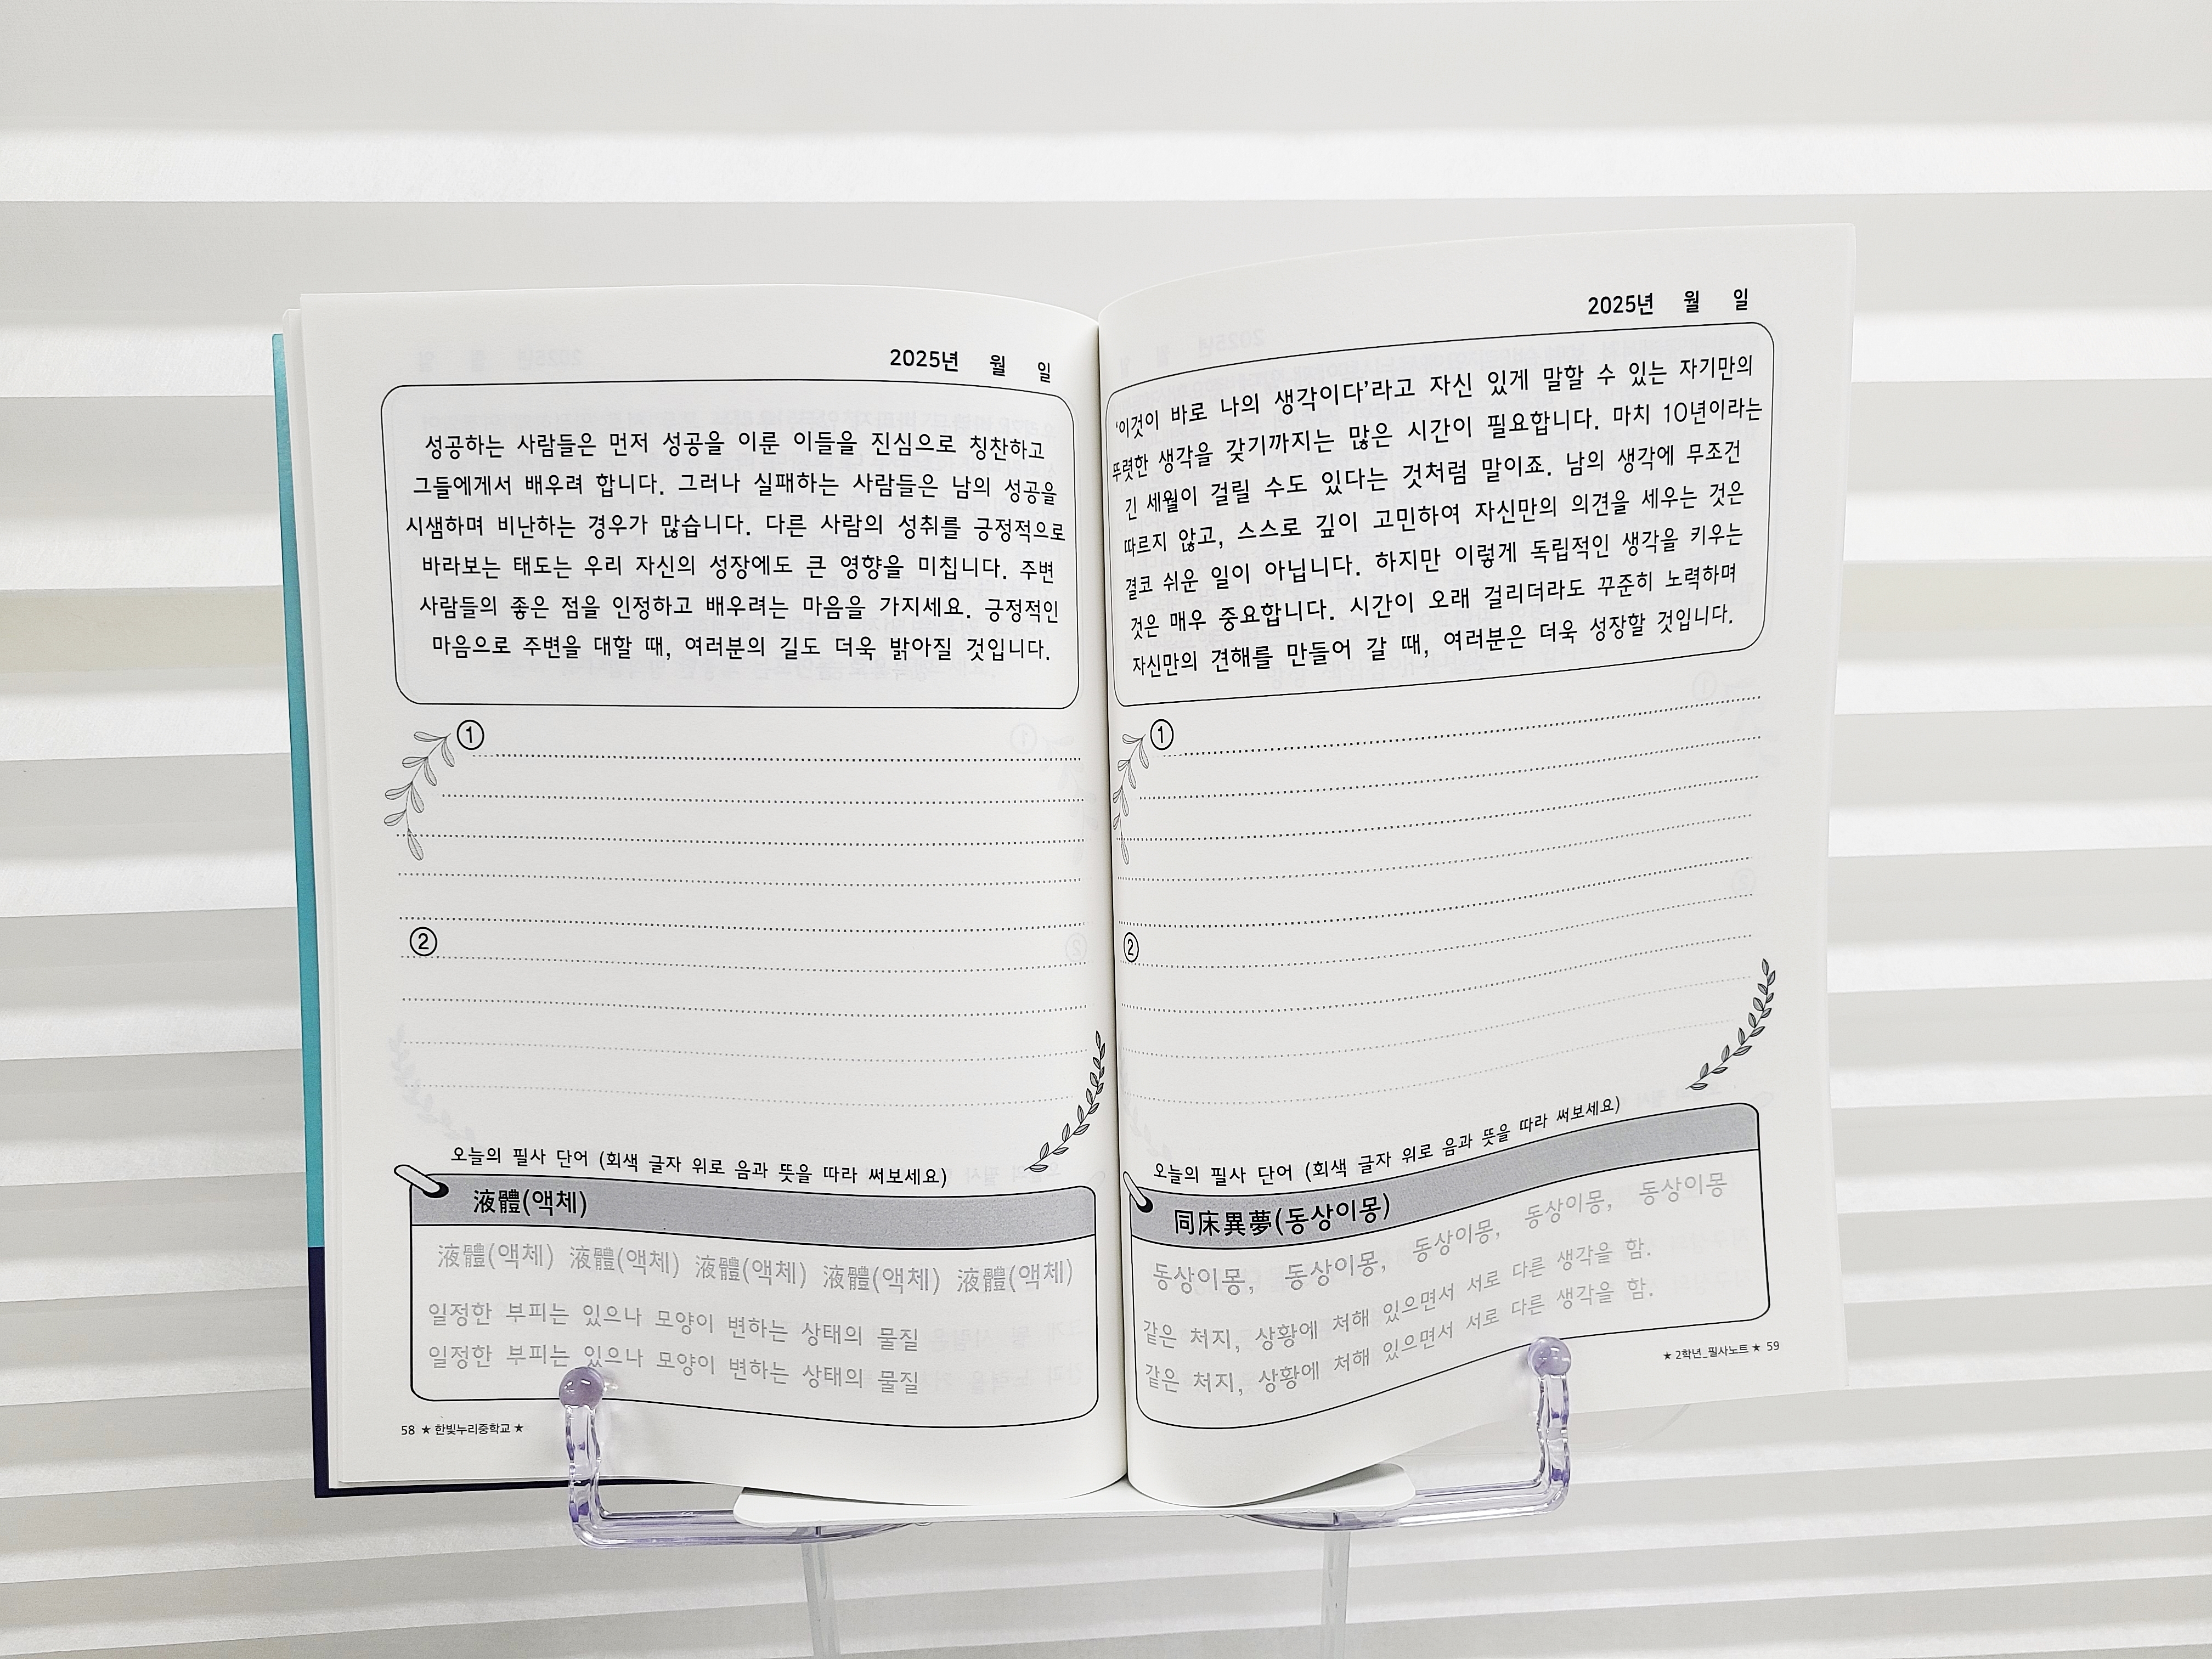 2025년 월 일
성공하는 사람들은 먼저 성공을 이룬 이들을 진심으로 칭찬하고
그들에게서 배우려 합니다. 그러나 실패하는 사람들은 남의 성공을
시샘하며 비난하는 경우가 많습니다. 다른 사람의 성취를 긍정적으로
바라보는 태도는 우리 자신의 성장에도 큰 영향을 미칩니다. 주변
사람들의 좋은 점을 인정하고 배우려는 마음을 가지세요. 긍정적인
마음으로 주변을 대할 때, 여러분의 길도 더욱 밝아질 것입니다.
①
②
오늘의 필사 단어 (회색 글자 위로 음과 뜻을 따라 써보세요)
液體(액체)
液體(액체) 液體(액체) 液體(액체) 液體(액체) 液體(액체)
일정한 부피는 있으나 모양이 변하는 상태의 물질
일정한 부피는 있으나 모양이 변하는 상태의 물질
58 ★ 한빛누리중학교 ★
2025년 월 일
'이것이 바로 나의 생각이다'라고 자신 있게 말할 수 있는 자기만의
뚜렷한 생각을 갖기까지는 많은 시간이 필요합니다. 마치 10년이라는
긴 세월이 걸릴 수도 있다는 것처럼 말이죠. 남의 생각에 무조건
따르지 않고, 스스로 깊이 고민하여 자신만의 의견을 세우는 것은
결코 쉬운 일이 아닙니다. 하지만 이렇게 독립적인 생각을 키우는
것은 매우 중요합니다. 시간이 오래 걸리더라도 꾸준히 노력하며
자신만의 견해를 만들어 갈 때, 여러분은 더욱 성장할 것입니다.
①
②
오늘의 필사 단어 (회색 글자 위로 음과 뜻을 따라 써보세요)
同床異夢(동상이몽)
동상이몽, 동상이몽, 동상이몽, 동상이몽, 동상이몽
같은 처지, 상황에 처해 있으면서 서로 다른 생각을 함.
같은 처지, 상황에 처해 있으면서 서로 다른 생각을 함.
★ 2학년_필사노트 ★ 59